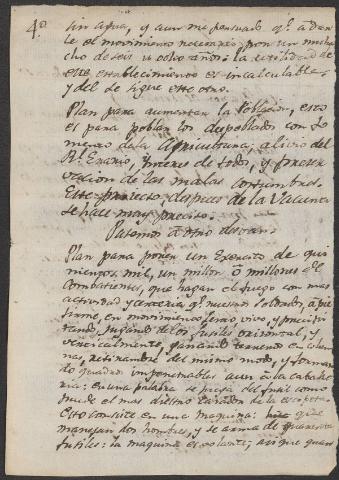 4.º
sin agua, y aun me persuado q.e a dar
le el movimiento necesario por un mucha
cho de seis u ocho años: la utilidad de
este establecimiento es incalculable,
y del se sigue este otro.
Plan para aumentar la Poblacion, esto
es para poblar los despoblados con fo
mento de la Agricultura, alivio del
R.l Erario, vienes de todo, y preser
vacion de las malas costumbres.
Este proyecto despues de la Vacuna
se hace muy preciso.
Pasemos a otro
Plan para poner un Exercito de qui
nientos mil, un millon, o millones de
Combatientes, que hagan el fuego con mas
actividad y certeria q.e nuestros Soldados, a pie
firme, en movimiento lento vivo y precipi
tando, jugando de los fusiles orisontal, y
verticalmente, ganando terreno en colum
nas, retirandose del mismo modo, y forman
do quadros impenetrables aun a la caballe
ria: en una palabra se juega del fusil como
puede el mas diestro cazador de la escopeta.
Esto consiste en una maquina: que
manejan dos hombres, y se arma de quarenta
fusiles: la maquina es volante; asi que quan